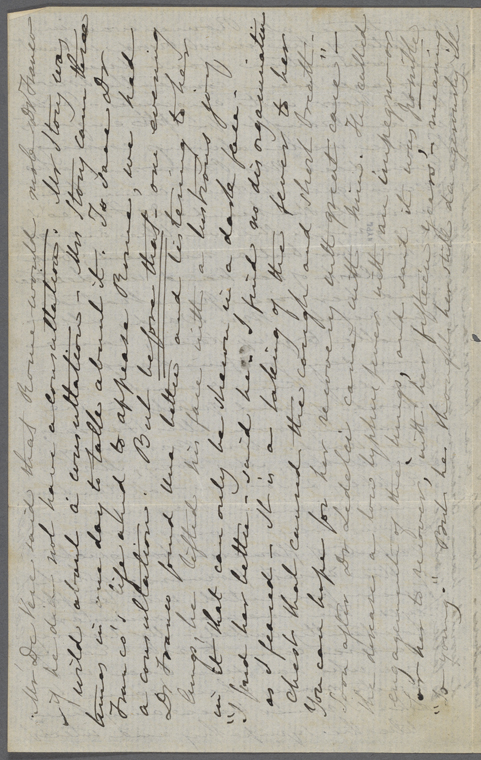 Mr De Vere said that Rome would mob Dr Franco
if he did not have a consultation. Mr Story was
wild about a consultation – Mrs Story came three
times in one day to talk about it. To save Dr
Franco's life and to appease Rome, we had
a consultation. But before that one evening
Dr Franco found Una better and listening to her
lungs he lifted his face with a lustrous joy
in it that can only be shewn in a dark face.
"I find her better – said he – I find no disorganization
as I feared – It is a taking of the fever to her
chest that caused the cough and short breath –
You can hope for her recovery with great care" –
Soon after Dr came with him. He called
the disease a low typhus fever with an impegno or
engagement of the lungs, and said it was possible
for her to recover, with her fifteen years' – meaning
"so young." But he thought her still dangerously ill